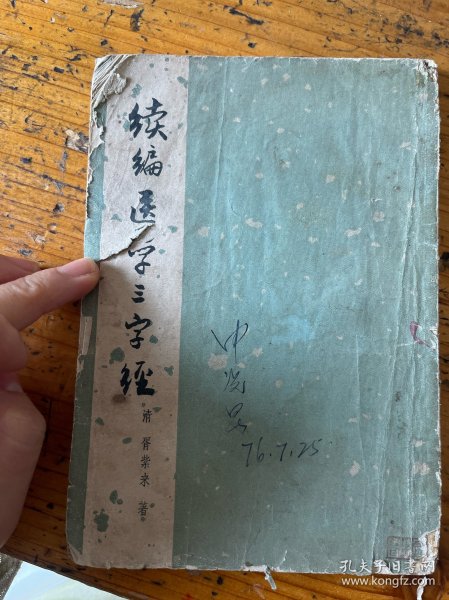 续编医学三字经
清 胥紫来 著
76.7.25
孔夫子旧书网
www.kongfz.com